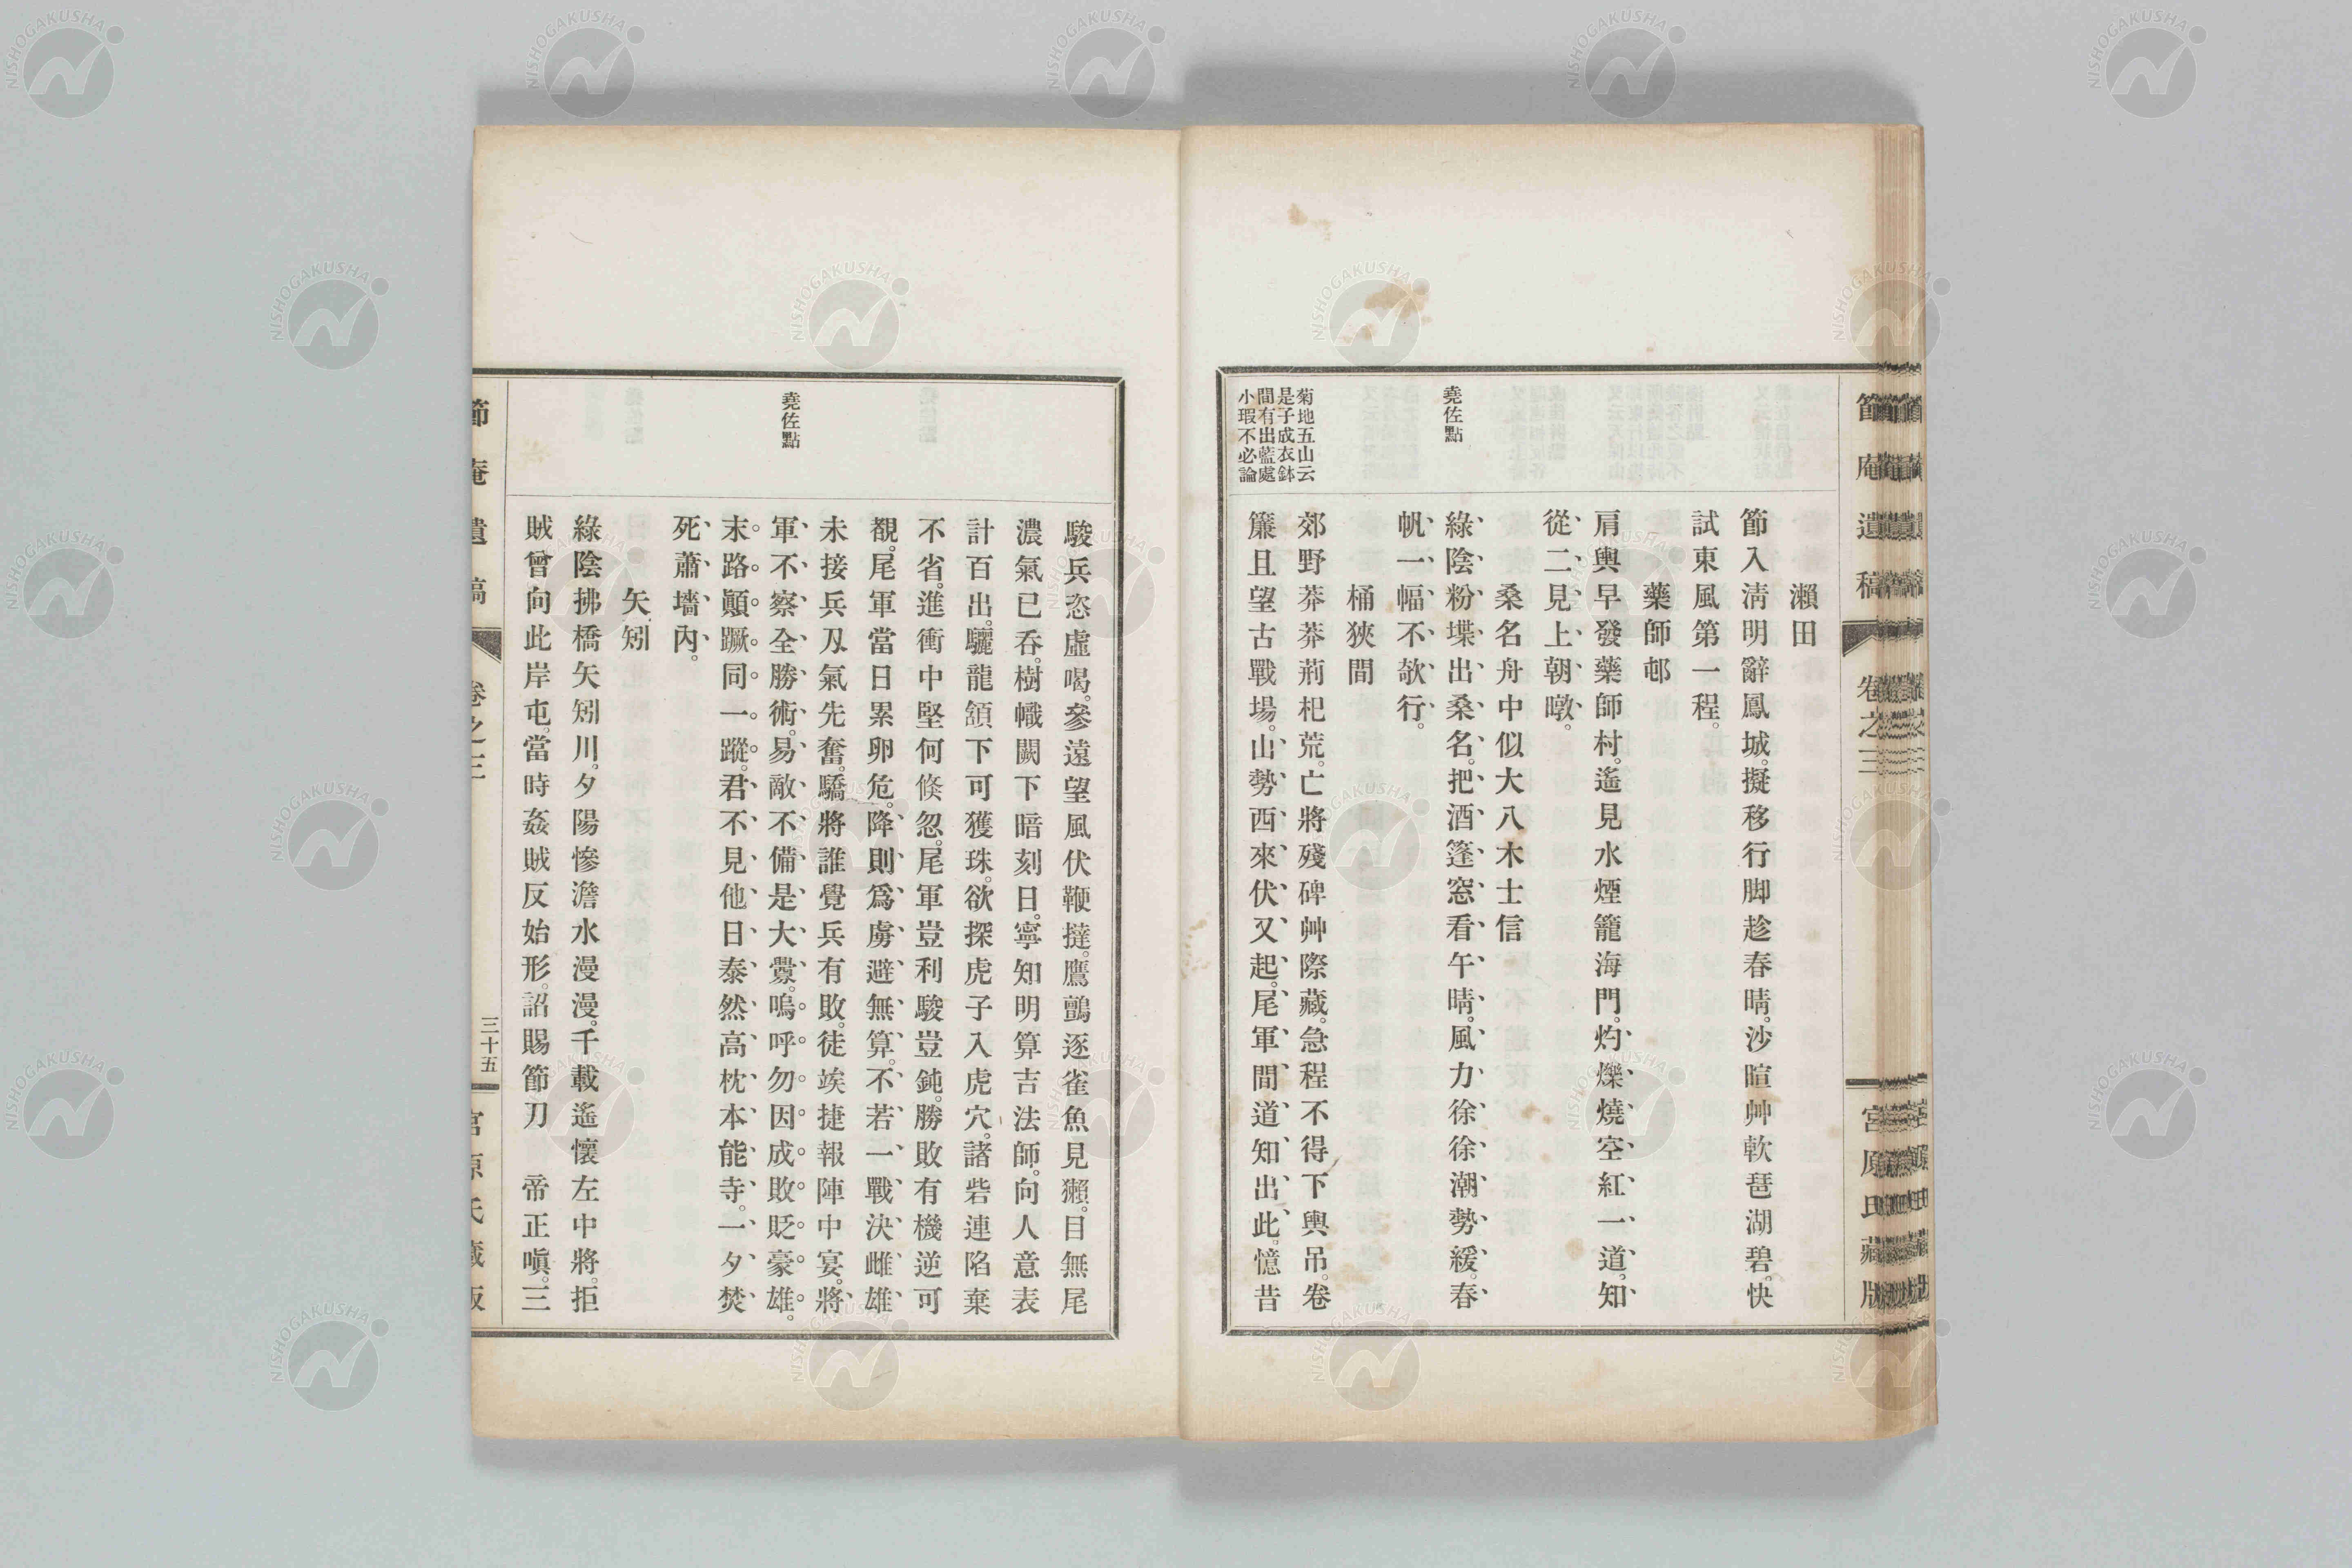 節庵遺稿 卷之三 宮原氏藏版
瀨田
節入淸明辭鳳城。擬移行脚趁春晴。沙暄艸軟琶湖碧。快
試東風第一程。
藥師邨
肩輿早發藥師村。遙見水煙籠海門。灼爍燒空紅一道。知
從二見上朝暾。
桑名舟中似大八木士信
堯佐點
綠陰粉堞出桑名。把酒篷窓看午晴。風力徐徐潮勢緩。春
帆一幅不欹行。
桶狹間
菊地五山云
是子成衣鉢
間有出藍處
小瑕不必論
郊野莽莽荊杞荒。亡將殘碑艸際藏。急程不得下輿吊。卷
簾且望古戰場。山勢西來伏又起。尾軍間道知出此。憶昔
駿兵恣虛喝。參遠望風伏鞭撻。鷹鸇逐雀魚見獺。目無尾
濃氣已呑。樹幟闕下暗刻日。寧知明算吉法師。向人意表
計百出。驪龍頷下可獲珠。欲探虎子入虎穴。諸砦連陷棄
不省。進衝中堅何倐忽。尾軍豈利駿豈鈍。勝敗有機逆可
覩。尾軍當日累卵危。降則爲虜避無算。不若一戰決雌雄
未接兵刄氣先奮。驕將誰覺兵有敗。徒竢捷報陣中宴。將
堯佐點
軍不察全勝術。易敵不備是大釁。嗚呼勿因成敗貶豪雄。
末路顚蹶同一蹤。君不見他日泰然高枕本能寺。一夕焚
死蕭墻內。
矢矧
綠陰拂橋矢矧川。夕陽慘澹水漫漫。千載遙懷左中將。拒
賊曾向此岸屯。當時姦賊反始形。詔賜節刀 帝正嗔。三
節庵遺稿 卷之三 三十五 宮原氏藏版